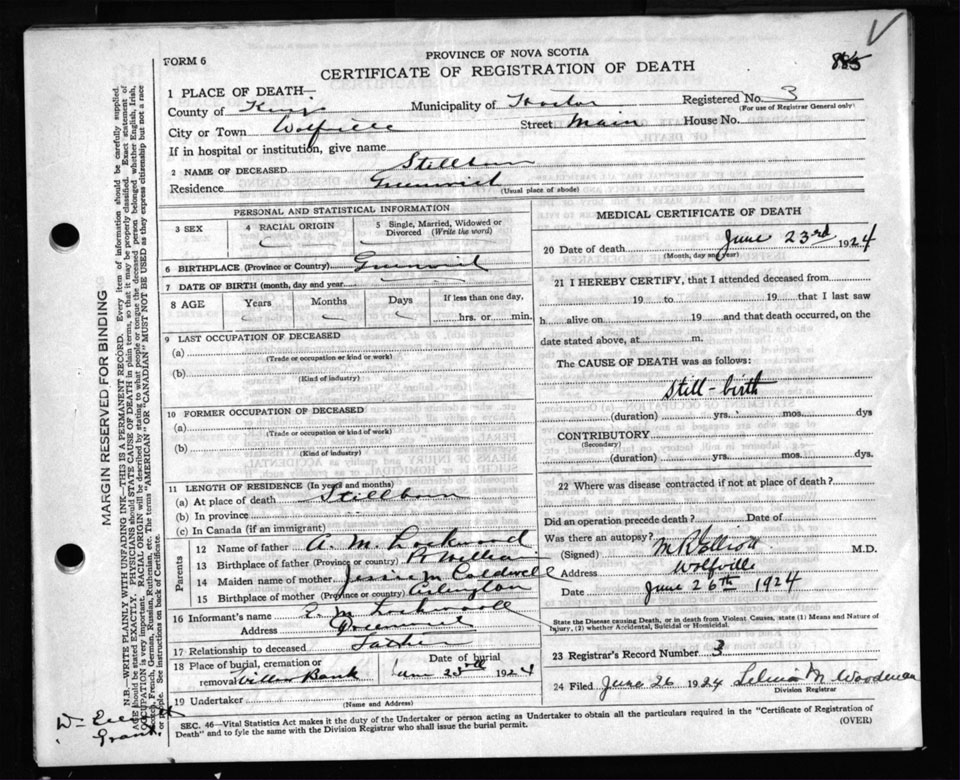 FORM 6
PROVINCE OF NOVA SCOTIA
CERTIFICATE OF REGISTRATION OF DEATH
885
1 PLACE OF DEATH—
County of Kings Municipality of Horton Registered No. 3
(For use of Registrar General only)
City or Town Wolfville Street Main House No.
If in hospital or institution, give name
2 NAME OF DECEASED Stillborn
Residence Greenwich
(Usual place of abode)
PERSONAL AND STATISTICAL INFORMATION
3 SEX 4 RACIAL ORIGIN 5 Single, Married, Widowed or Divorced (Write the word)
6 BIRTHPLACE (Province or Country) Greenwich
7 DATE OF BIRTH (month, day and year)
8 AGE Years Months Days If less than one day,
hrs. or min.
9 LAST OCCUPATION OF DECEASED
(a)
(Trade or occupation or kind of work)
(b)
(Kind of industry)
10 FORMER OCCUPATION OF DECEASED
(a)
(Trade or occupation or kind of work)
(b)
(Kind of industry)
11 LENGTH OF RESIDENCE (In years and months)
(a) At place of death Stillborn
(b) In province
(c) In Canada (if an immigrant)
Parents
12 Name of father A. M. Lockwood
13 Birthplace of father (Province or country) Pt Williams
14 Maiden name of mother Jessie M Caldwell
15 Birthplace of mother (Province or country) Arlington
16 Informant's name M Lockwood
Address Greenwich
17 Relationship to deceased Father
18 Place of burial, cremation or removal Willow Bank Date of burial June 23rd 1924
19 Undertaker
(Name and Address)
MEDICAL CERTIFICATE OF DEATH
20 Date of death June 23rd 1924
(Month, day and year)
21 I HEREBY CERTIFY, that I attended deceased from
19 to 19 that I last saw
h alive on 19 and that death occurred, on the
date stated above, at m.
The CAUSE OF DEATH was as follows:
Still-birth
(duration) yrs. mos. dys
CONTRIBUTORY
(Secondary)
(duration) yrs. mos. dys.
22 Where was disease contracted if not at place of death?
Did an operation precede death? Date of
Was there an autopsy?
(Signed) M R Elliott M.D.
Address Wolfville
Date June 26th 1924
State the Disease causing Death, or in death from Violent Causes, state (1) Means and Nature of
Injury, (2) whether Accidental, Suicidal or Homicidal.
23 Registrar's Record Number 3
24 Filed June 26 1924 Woodman
Division Registrar
SEC. 46—Vital Statistics Act makes it the duty of the Undertaker or person acting as Undertaker to obtain all the particulars required in the "Certificate of Registration of
Death" and to fyle the same with the Division Registrar who shall issue the burial permit.
(OVER)
MARGIN RESERVED FOR BINDING
N.B.—WRITE PLAINLY WITH UNFADING INK—THIS IS A PERMANENT RECORD. Every item of information should be carefully supplied.
AGE should be stated EXACTLY. PHYSICIANS should STATE CAUSE OF DEATH in plain terms, so that it may be properly classified. Exact statement of
OCCUPATION is very important. RACIAL ORIGIN will be described by stating to what people or tongue the deceased person belonged whether English, Irish,
Scotch, French, German, Russian, Ruthenian, etc. The terms "AMERICAN" OR "CANADIAN" MUST NOT BE USED as they express citizenship but not a race
or people. See instructions on back of Certificate.